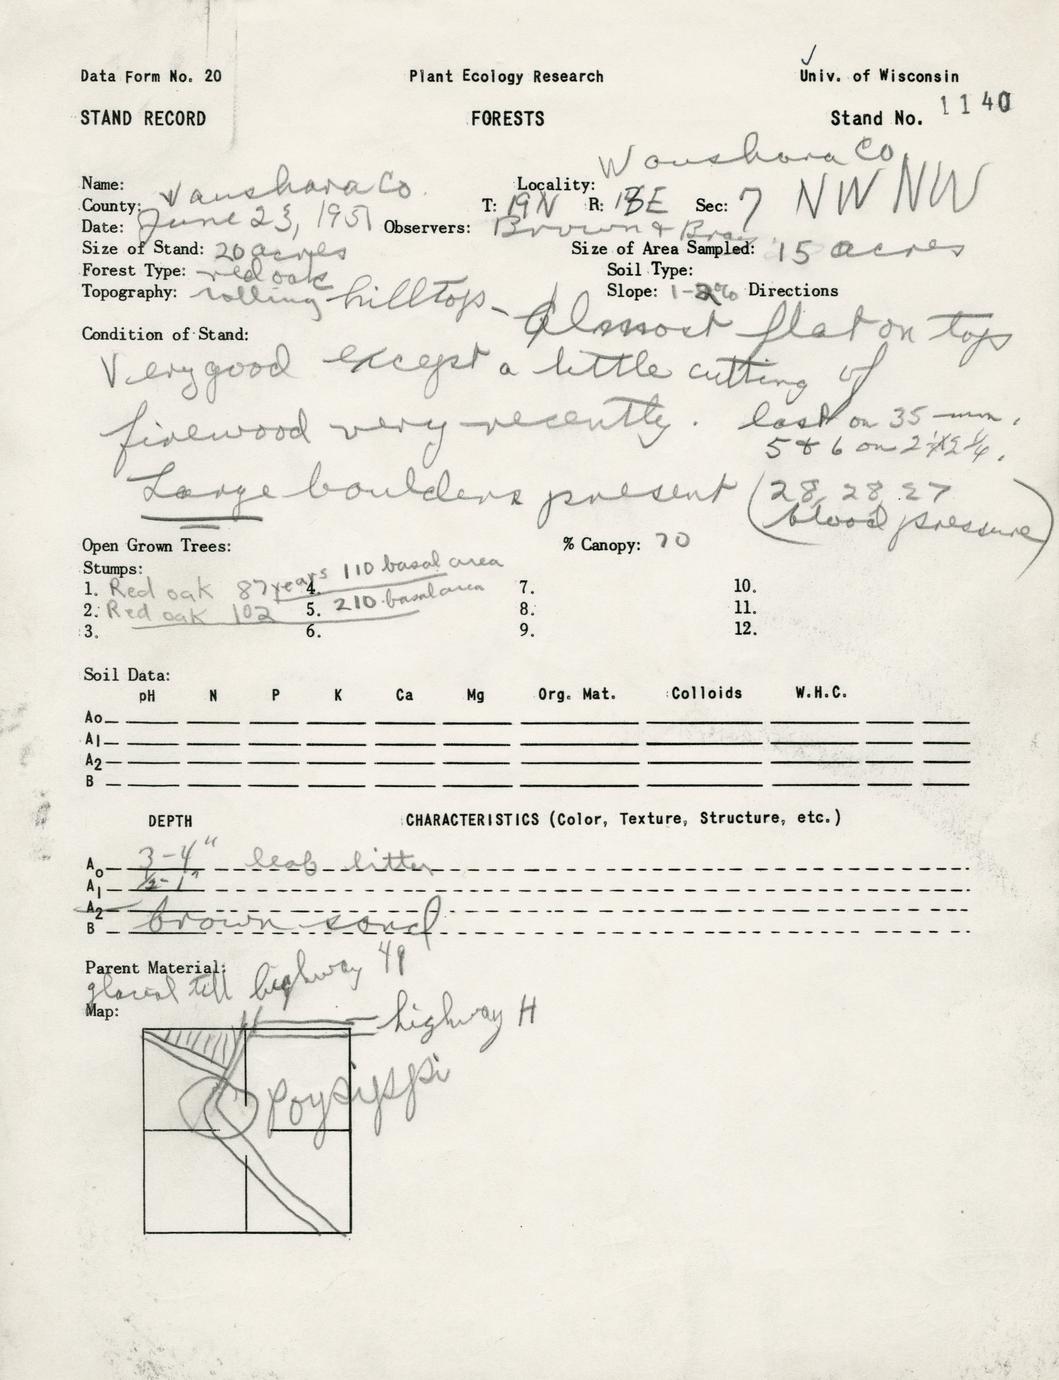 Data Form No. 20 Plant Ecology Research Univ. of Wisconsin
STAND RECORD FORESTS Stand No. 1140
Waushara Co.
Name: Waushara Co. Locality:
County: T: 19N R: 13E Sec: 7 NW NW
Date: June 23, 1951 Observers: Brown & Bray
Size of Stand: 20 acres Size of Area Sampled: 15 acres
Forest Type: red oak Soil Type:
Topography: rolling hilltop - almost flat on top Slope: 1-2% Directions
Condition of Stand:
Very good except a little cutting of
firewood very recently. last on 35 mm.
5 & 6 on 2 1/4 x 2 1/4.
Large boulders present (28, 28, 27
blood pressure)
Open Grown Trees: % Canopy: 70
Stumps:
1. Red oak 87 years 110 basal area 4. 7. 10.
2. Red oak 102 5. 210 basal area 8. 11.
3. 6. 9. 12.
Soil Data:
pH N P K Ca Mg Org. Mat. Colloids W.H.C.
Ao
A1
A2
B
DEPTH CHARACTERISTICS (Color, Texture, Structure, etc.)
Ao 3-4" leaf litter
A1 1/2-1"
A2
B brown sand
Parent Material:
glacial till highway 49
Map:
highway H
Poysippi